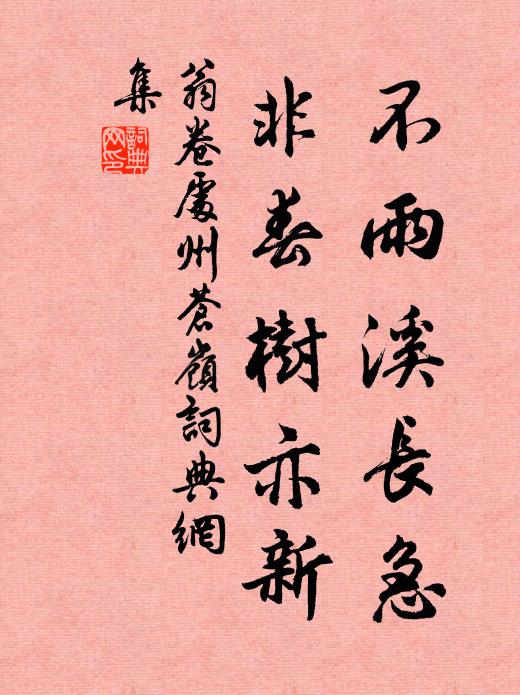 不雨溪長急
非春樹亦新
翁卷處州蒼嶺詞典網
集
詞典
网印